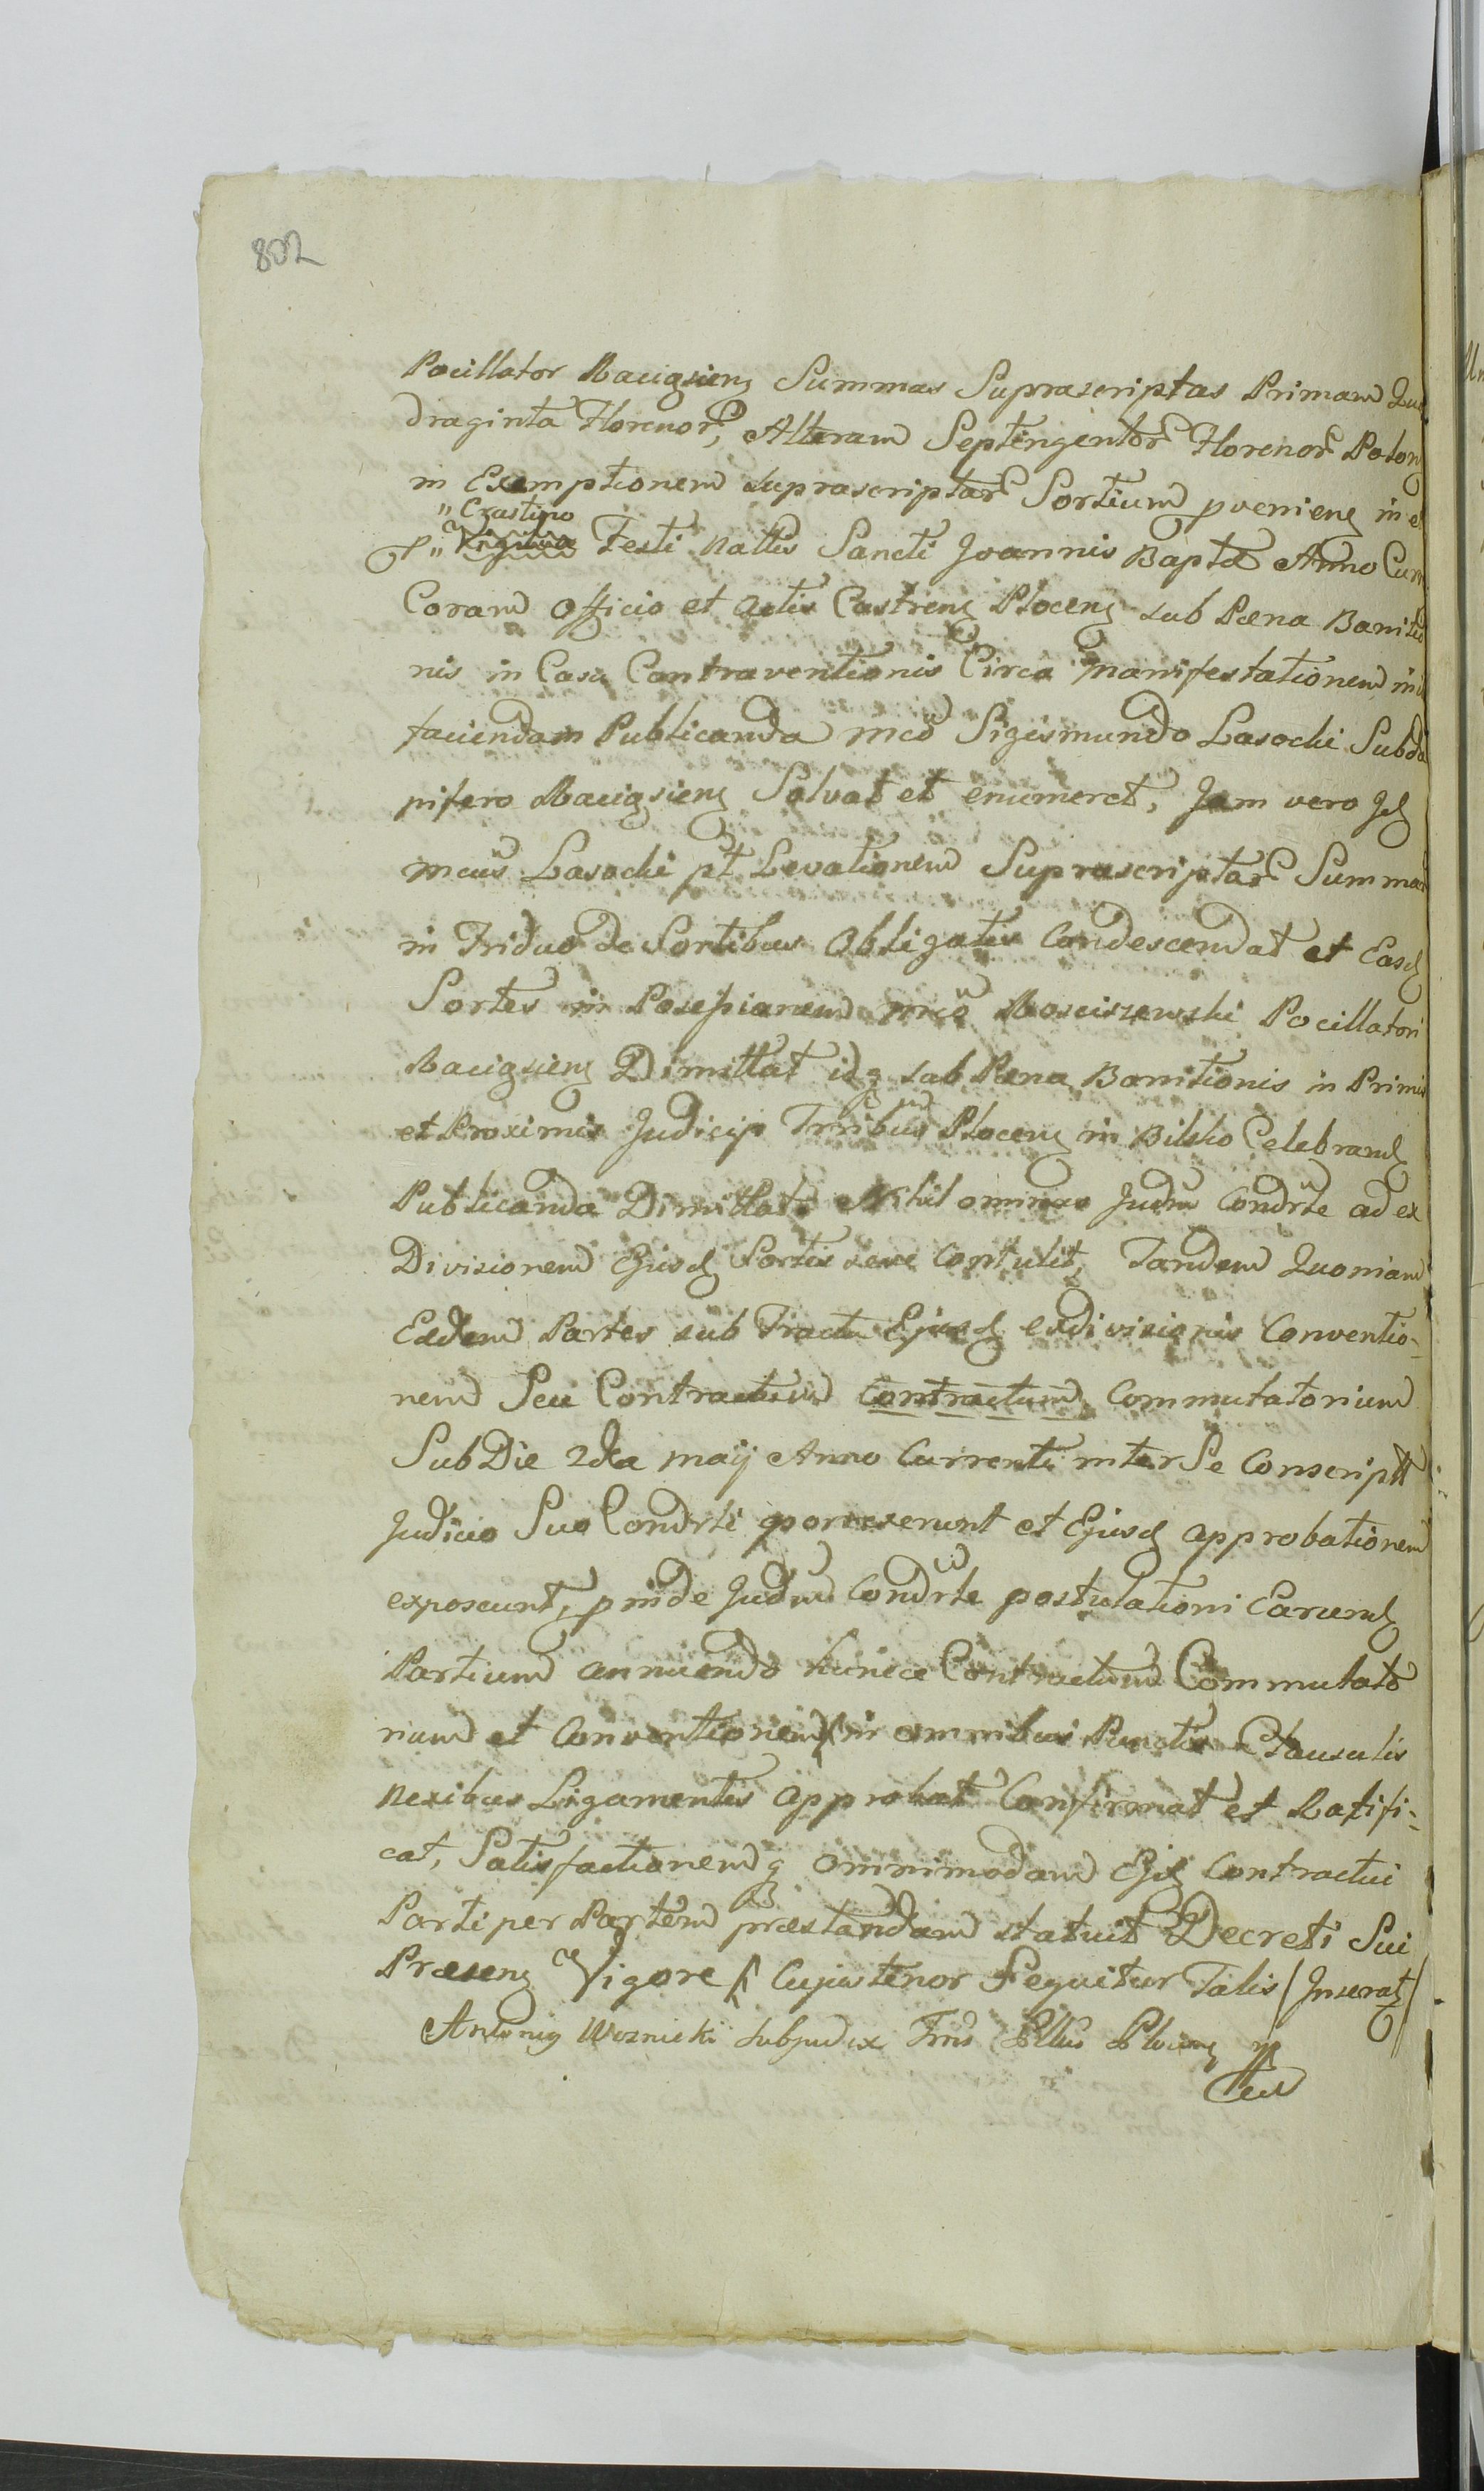 802
Pocillator Raciązieng Summas Suprascriptas Primam Qua
draginta Florenor, Alteram Septingentor Florenor Polon
in Exemptionem suprascriptar Sortium pveniens in
" Crastino
" Vigilia Festi Nattis Sancti Joannis Baptae Anno Curr
Coram Officio et Actis Castrens Plocens sub Paena Banitio
nis in Casu Contraventionis Circa Manifestationem
faciendam Publicanda Mcŏ Sigismundo Lasocki Subda
pifero Raciąziens Solvat et enumeret, Jam vero Jd
Mcus Lasocki pt Levationem Suprascriptar Summar
in Triduo de Sortibus Obligatis Condescendat et Easd
Sortes in Possessionem Mcŏ Mosciszewski Pocillatori
Raciąziens Dimittat idq sub Paena Banitionis in Primis
et Proximis Judicijs Trribus Plocens in Bilsko Celebrand
Publicanda Dimittat Nihil ominus Judm Condrle ad ex
Divisionem Ejusd Sortis sese Contulit, Tandem Quoniam
Eaedem Partes sub Tractu Ejusd exdivisionis Conventio-
nem Seu Contractum Contractum Commutatorium
Sub Die 2da Maij Anno Currenti inter Se Conscriptt
Judicio Suo Condrli porrexerunt et Ejusd approbationem
exposcunt, pinde Judm Condrle postulationi Earund
Partium annuendo hunce Contractum Commutato
rium et Conventionem in omnibus Punctis Clausulis
Nexibus Ligamentis Approbat Confirmat et Ratifi-
cat, Satisfactionemq omnimodam Ejd Contractui
Parti per Partem praestandam statuit Decreti Sui
Praesens Vigore Cujus tenor Sequitur Talis (Inserat)
Antonius Woznicki Subjudex Trris Pllus Plocens mp